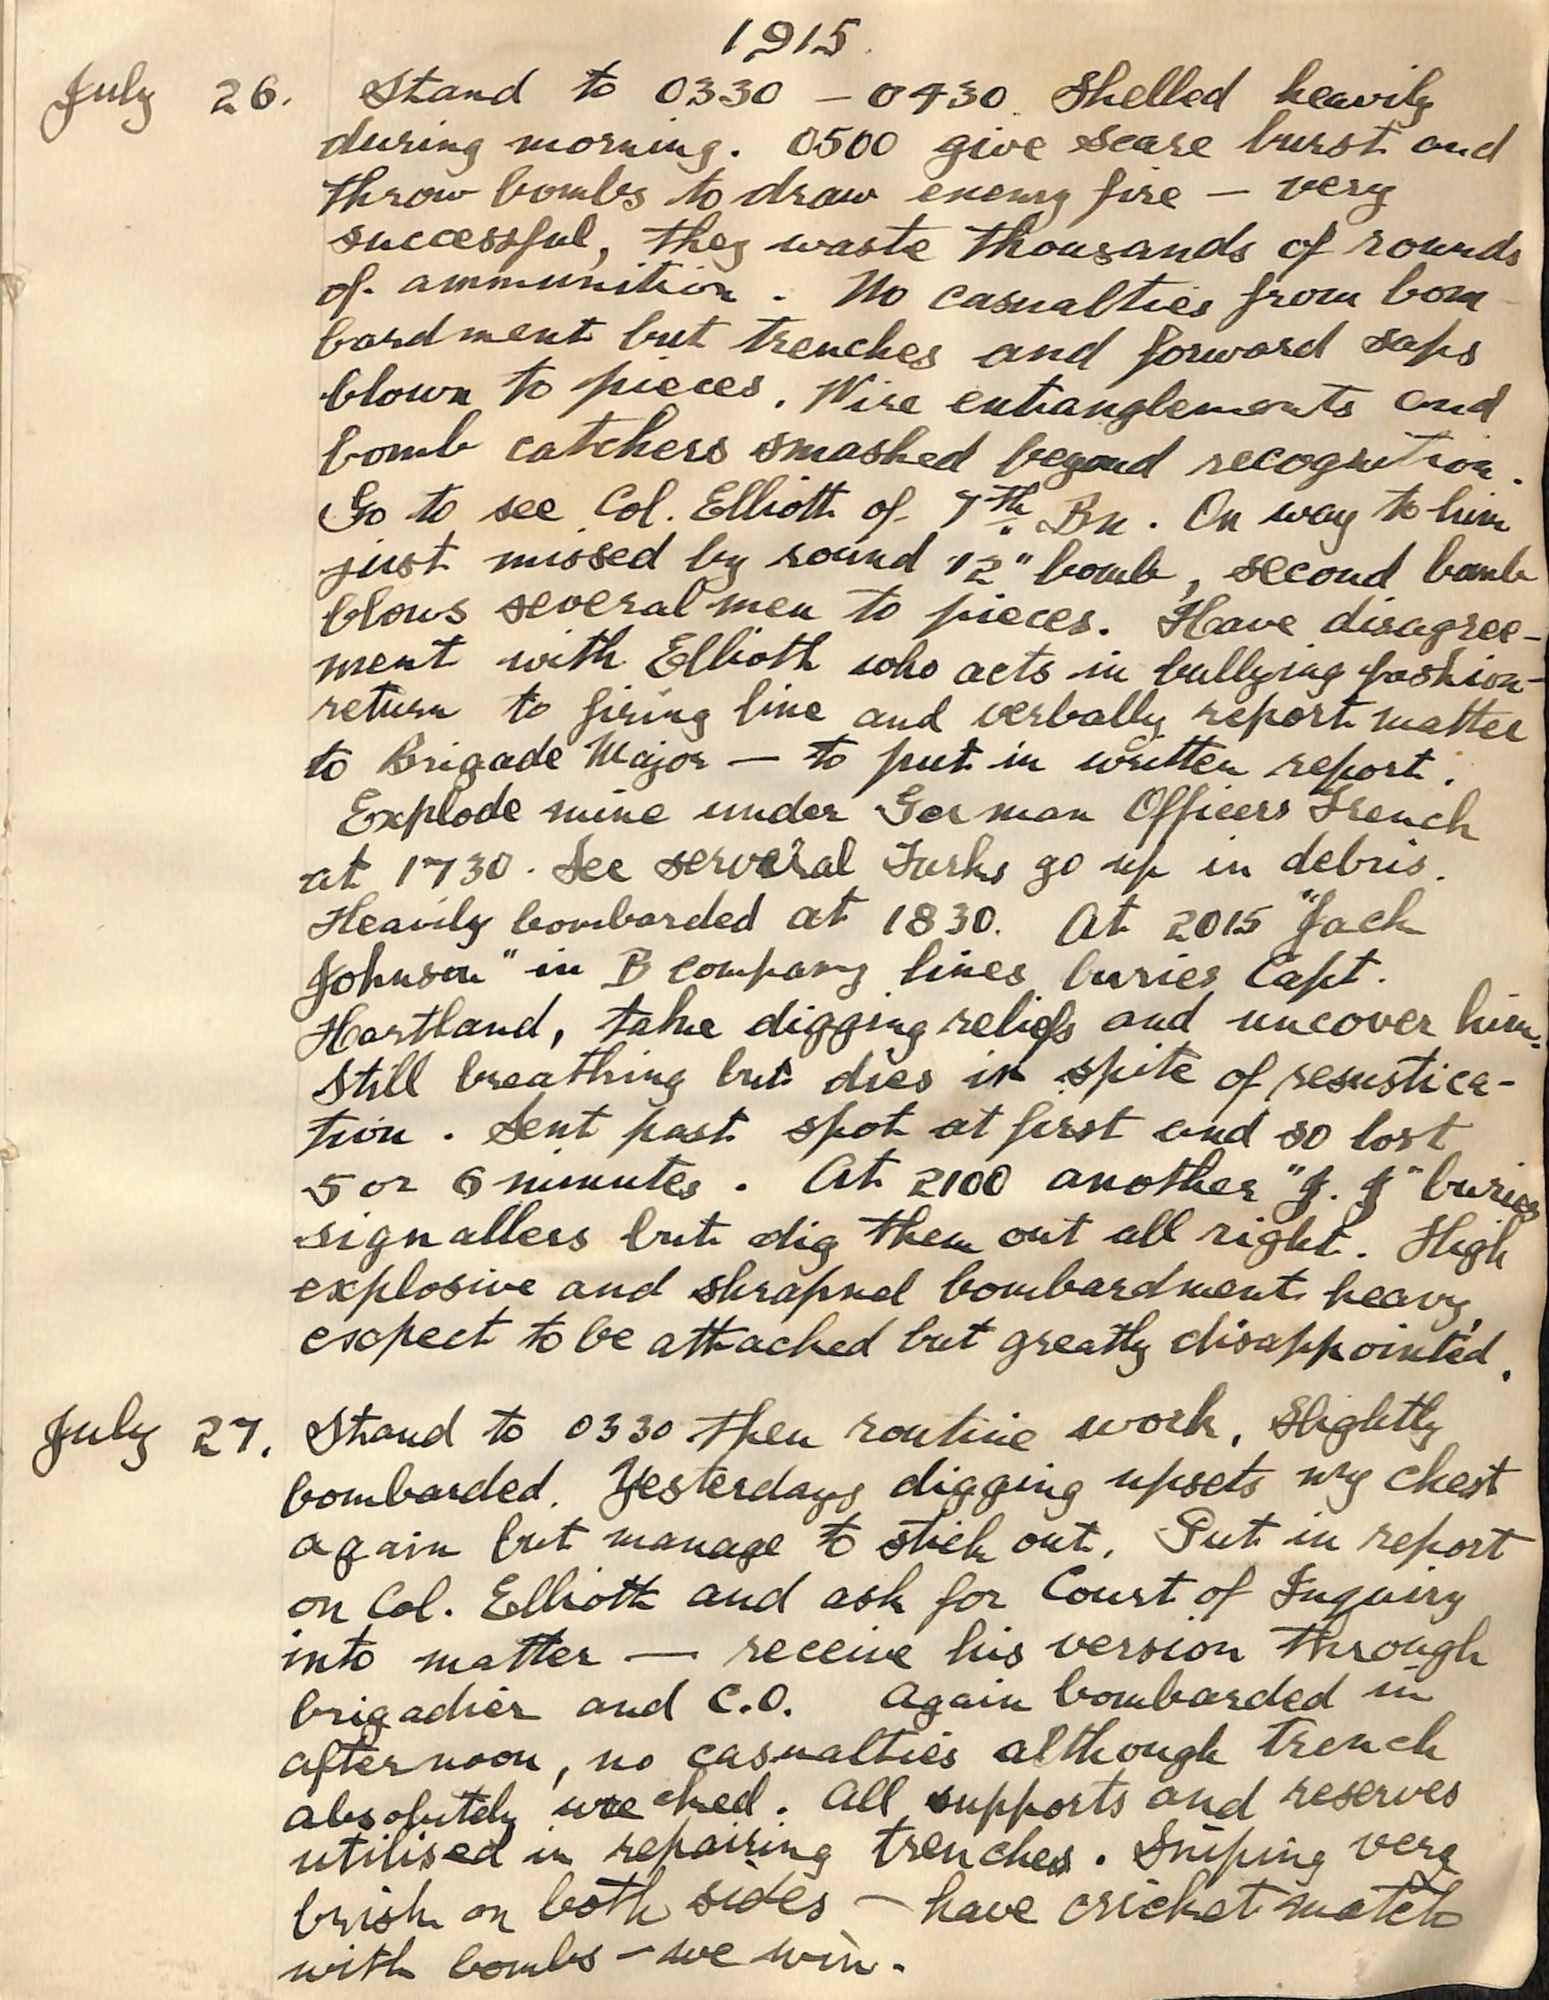 1915.
July 26. Stand to 0330 - 0430. Shelled heavily
during morning. 0500 give scare burst and
throw bombs to draw enemy fire - very
successful, they waste thousands of rounds
of ammunition. No casualties from bom-
bardment but trenches and forward saps
blown to pieces. Wire entanglements and
bomb catchers smashed beyond recognition.
Go to see Col. Elliott of 7th Bn. On way to him
just missed by round "12" bomb, second bomb
blows several men to pieces. Have disagree-
ment with Elliott who acts in bullying fashion -
return to firing line and verbally report matter
to Brigade Major - to put in written report.
Explode mine under German Officers Trench
at 1730. See serveral Turks go up in debris.
Heavily bombarded at 1830. At 2015 "Jack
Johnson" in B company lines buries Capt.
Hartland, take digging reliefs and uncover him.
Still breathing but dies in spite of resustica-
tion. Sent past spot at first and so lost
5 or 6 minutes. At 2100 another "J. J" buries
signallers but dig them out all right. High
explosive and shrapnel bombardment heavy,
expect to be attacked but greatly disappointed.
July 27. Stand to 0330 then routine work. Slightly
bombarded. Yesterdays digging upsets my chest
again but manage to stick out. Put in report
on Col. Elliott and ask for Court of Inquiry
into matter - receive his version through
brigadier and C.O. Again bombarded in
afternoon, no casualties although trench
absolutely wrecked. All supports and reserves
utilised in repairing trenches. Sniping very
brisk on both sides - have cricket match
with bombs - we win.